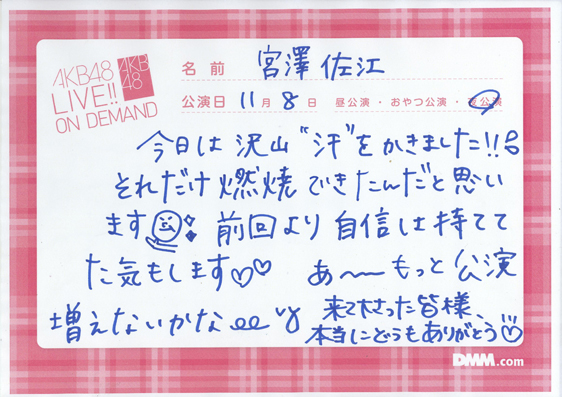 AKB48
LIVE!!
ON DEMAND
AKB
48
名前 宮澤 佐江
公演日 11月8日 昼公演・おやつ公演・夜公演
今日は沢山"汗"をかきました!!
それだけ燃焼できたんだと思い
ます 前回より自信は持てて
た気もします♡♡ あ〜もっと公演
増えないかな
来て下さった皆様、
本当にどうもありがとう
DMM.com